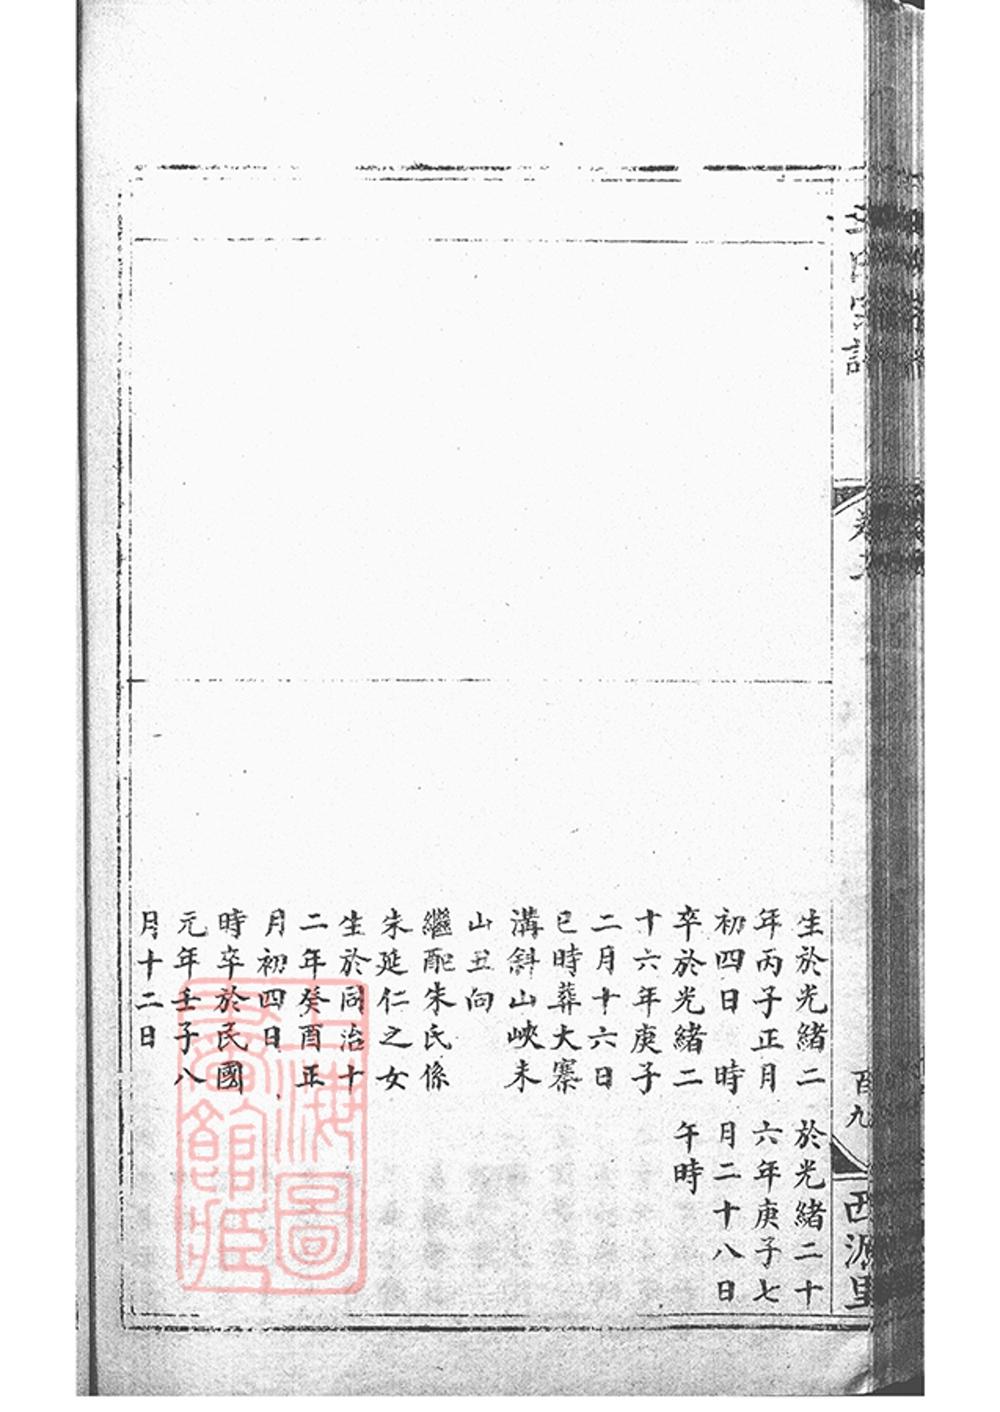 西源里
生於光緒二
年丙子正月
初四日 時
卒於光緒二
十六年庚子
二月十六日
巳時葬大寨
溝斜山峽未
山丑向
繼配朱氏係
朱延仁之女
生於同治十
二年癸酉正
月初四日
時卒於民國
元年壬子八
月十二日
於光緒二十
六年庚子七
月二十八日
午時
上海圖
書館藏